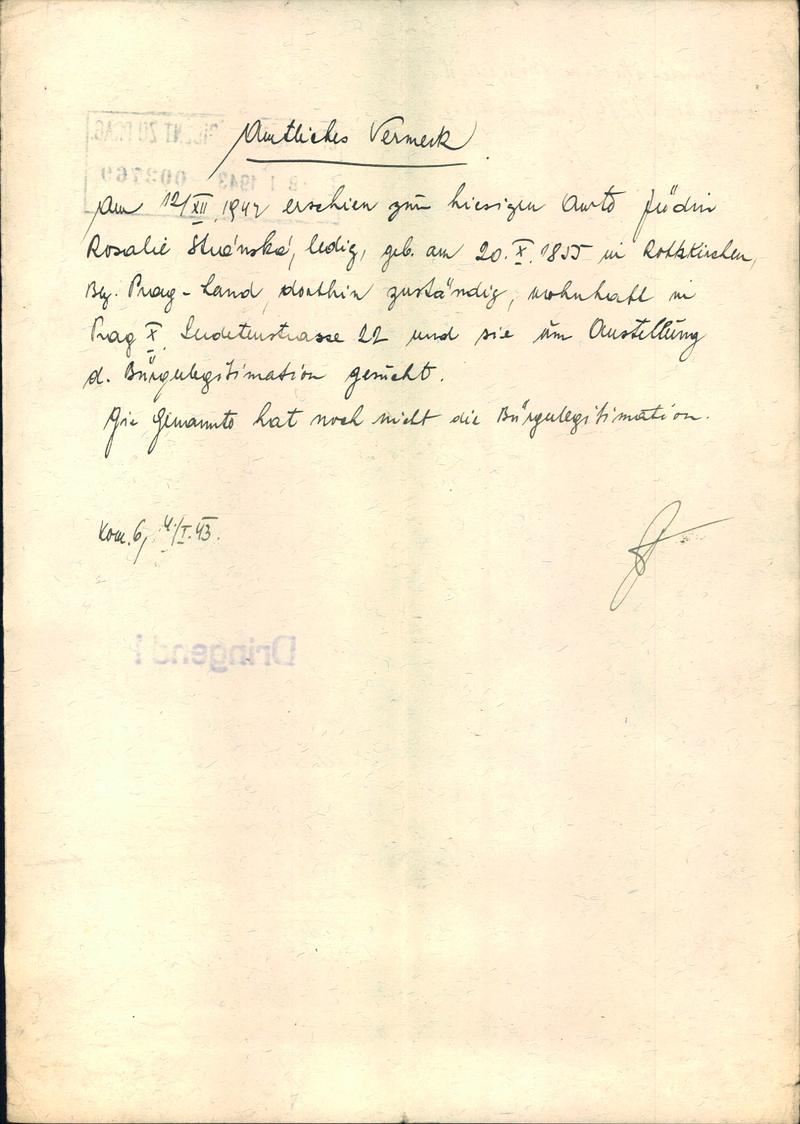 Amtliches Vermerk
Am 12/XII 1942 erschien zum hiesigen Amte Jüdin
Rosalie Stránská, ledig, geb. am 20. X. 1855 in Rothkirchen,
Bez. Prag-Land, dorthin zuständig, wohnhaft in
Prag X Sudetenstrasse 22 und sie um Ausstellung
d. Bürgerlegitimation gesucht.
Die Genannte hat noch nicht die Bürgerlegitimation.
Kom. 6, 4./I. 43.
Dringend!